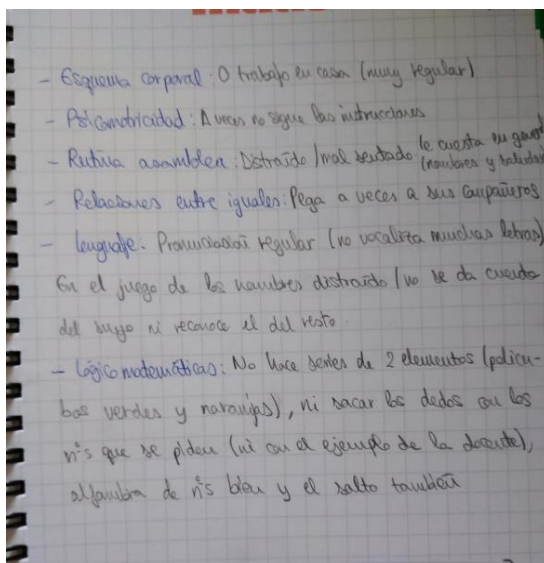 - Esquema corporal: 0 trabajo en casa (muy regular)
- Psicomotricidad: A veces no sigue las instrucciones
- Rutina asamblea: Distraído / mal sentado le cuesta en general (nombres y saludar)
- Relaciones entre iguales: Pega a veces a sus compañeros
- Lenguaje: Pronunciación regular (no vocaliza muchas letras)
En el juego de los nombres distraído / no se da cuenta
del suyo ni reconoce el del resto.
- Lógico matemáticas: No hace series de 2 elementos (policu-
bos verdes y naranjas), ni sacar los dedos con los
nºs que se piden (ni con el ejemplo de la docente),
alfombra de nºs bien y el salto también